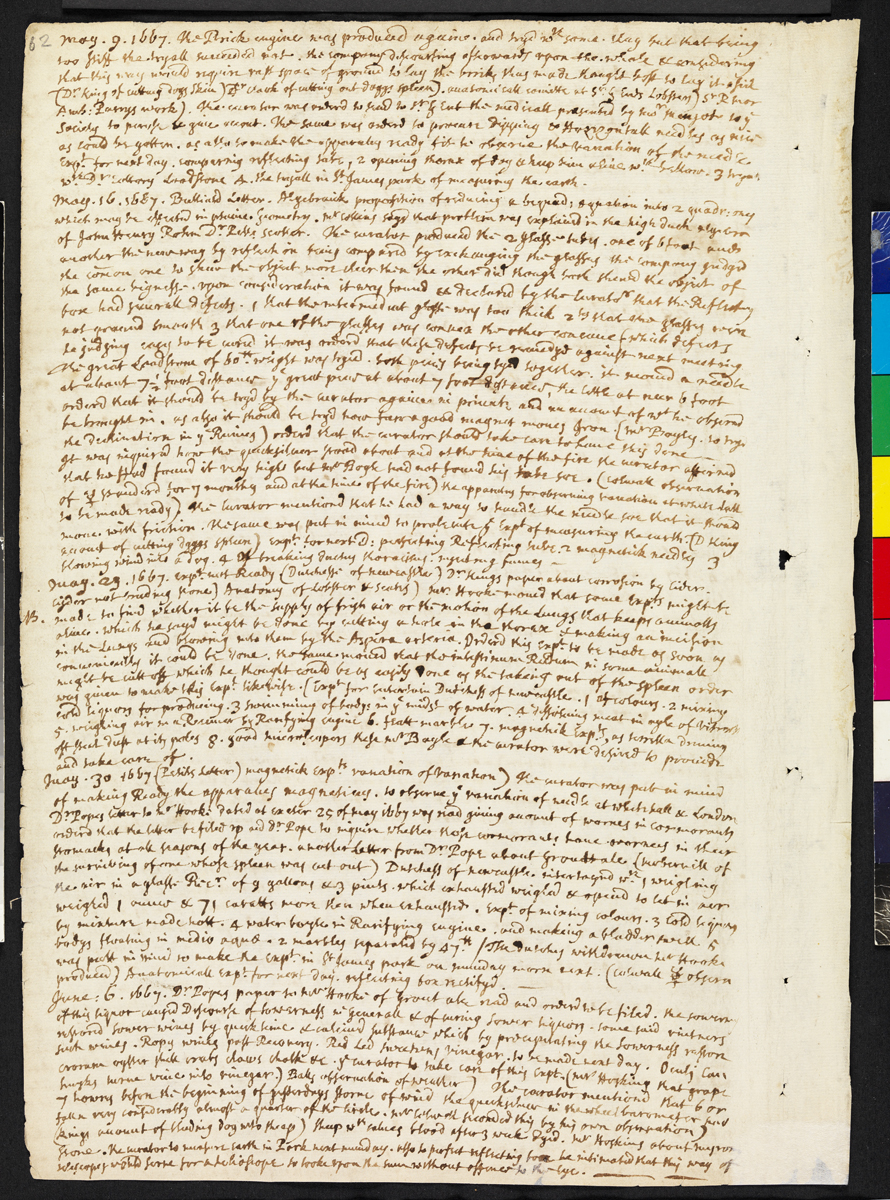 62 May. 9. 1667. The Brick engine was produced againe. and tryd wth some. Clay but that being
too stiff the tryall succeeded not. the company discoursing afterwards upon the whole & considering
that this way would require vast space of ground to lay the bricks thus made thought best to lay it aside
(Dr King of cutting doggs skin) Dr of cutting out doggs spleen). anatomicall comitte at
Amb: Parrys work). The curator was orderd to send to the medicall presented by to ye
Society to peruse & give account. The same was orderd to procure Dipping & Horizontall needles as nice
as could be gotten. as also to make the apparatus ready fit to observe the variation of the needle
Expts for next day. comparing reflecting tube. 2 opening thorax of dog & keep him alive wth bellows. 3 tryall
wth Dr loadstone 4. the tryall in St James park of measuring the earth.
May. 16. 1667. Bulliald Letter. Algebraick proposition of reducing a equation into 2 quadr: ones
which may be effected in plaine Geometry. Mr Collins says that problem was explaind in the high duch algebra
of John Henry Rohn Dr Pells Scoller. The curator produced the 2 glasse tubes. one of 6 foot and
another the new way by reflection being compared by exchanging the glasses the company judged
the one to shew the object more cleer then the other did though both shewd the object of
the same bignesse. upon consideration it was found & declared by the Curator that the Reflecting
box had severall defects. 1 that the intermediat glasse was too thick 2ly that the glasses were
not ground smooth 3 that one of the glasses was convex the other concave (which defects
he judging easy to be cured it was orderd that these defects be remedyd against next meeting
The great Loadstone of 60th weight was tryed. both peices being tyd together. it moved a needle
at about 7½ foot distance ye great peice at about 7 foot distance, the little at neer 6 foot
orderd that it should be tryd by the curator againe in private and an account of wt he observd
be brought in. as also it should be tryd how farr a good magnet moves Iron. (Mr Boyle. to try
the declination in ye) orderd that the curator should take care to have this done
It was inquired how the quicksilver stood about and at the time of the fire the curator affirmd
that he Had found it very high but Mr Boyle had not found his tube soe. (Colwall observation
of ☿ standard for 7 months and at the time of the fire) the apparatus for observing variation at whitehall
to be made ready) the Curator mentiond that he had a way to handle the needle soe that it should
move with friction. the same was put in mind to prosecute ye Expt of measuring the earth. (Dr King
account of cutting doggs spleen) Expts for next d: perfecting Reflecting tube. 2 magnetick needles 3
blowing wind into a dog. 4 Of breaking ductus thoracicus. injecting fumes —
May. 23. 1667. expts not Ready (Dutchesse of newcastle) Dr Kings paper about corrosion by cider.
(cyder not finding stone) Anatomy of Lobster & Scate) Mr Hooke moved that some Expts might be
NB. made to find whether it be the supply of fresh air or the motion of the Lungs that keeps animalls
alive. which he sayd might be done by cutting a hole in the thorax & making an incision
in the Lungs and blowing into them by the Aspera arteria. Orderd this Expt to be made as soon as
conveniently it could be done. the same moved that the intestinum Rectum in some animall
might be cutt off which he thought could be as easily done as the taking out of the spleen order
was given to make this Expt likewise. (Expts for entertain Dutchess of newcastle. 1 of colours. 2 mixing
cold liquors for producing. 3 swimming of bodys in ye midst of water. 4 dissolving meat in oyle of vitriol
5. weighing air in a Receiver by Rarifying engine 6. flatt marbles 7. magnetick Expts. as terrella driving
off steel dust at its poles 8. good microscopes these Mr Boyle & the curator were desired to provide
and take care of.
May. 30 1667 (Petits letter) magnetick Expts variation of Variation) The curator was put in mind
of making Ready the apparatus magneticus. to observe ye variation of needle at Whitehall & London
Dr Popes letter to Mr Hooke dated at exeter 25 of may 1667 was read giving account of wormes in cormorants
orderd that the letter be filed up and Dr Pope to inquire whether those cormorants have wormes in their
stomacks at all seasons of the year. another letter from Dr Pope about Grout ale (of
the surviving of one whose spleen was cut out) Dutchess of newcastle intertaynd wth 1 weighing
the air in a glasse Recr of 9 gallons & 3 pints. which exhausted weighd & opend to let in air
weighed 1 ounce & 71 caratts more then when exhausted. Expts of mixing colours. 3 cold liquors
by mixture made hott. 4 water boyle in Rarifying engine. and making a bladder swell. 5
bodys floating in medio aquæ. 2 marbles separated by 47th (The Dutchess withdrawn Mr Hooke
was putt in mind to make the Expt. in St James park on munday morn next. (Colwall ☿ observn
produced) Anatomicall Expt for next day. reflecting box rectifyd
June: 6. 1667. Dr Popes paper to Mr Hooke of Grout ale read and orderd to be filed. the sowern
of this liquor caused Discourse of Sowerness in generall & of curing Sower liquors. some said vintners
restored sower wines by quick lime & calcined substances which by precipitating the sowerness restore
such wines. Ropy wines past Recovery. Red Led sweetens vinegar. to be made next day. Oculi can
crorum oyster shels crabs claws chalk &c. ye curator to take care of this Expt. (Mr Hosking that grape
turne wine into vinegar.) Bales observation of weather) The curator mentiond that 6 or
7 howers before the beginning of yesterdays storme of wind the quicksilver in the wheel barometer had
fallen very considerably almost a quarter of the circle. Mr Colwall seconded this by his own observation)
(Kings account of bleeding dog into sheep) sheep wth calves blood after 3 week dyed. Mr Hoskins about
stone. the curator to measure earth in Park next munday. also to perfect reflecting box he intimated that this way of
telescopes would serve for a helioscope to looke upon the sun without offence to the Eye.